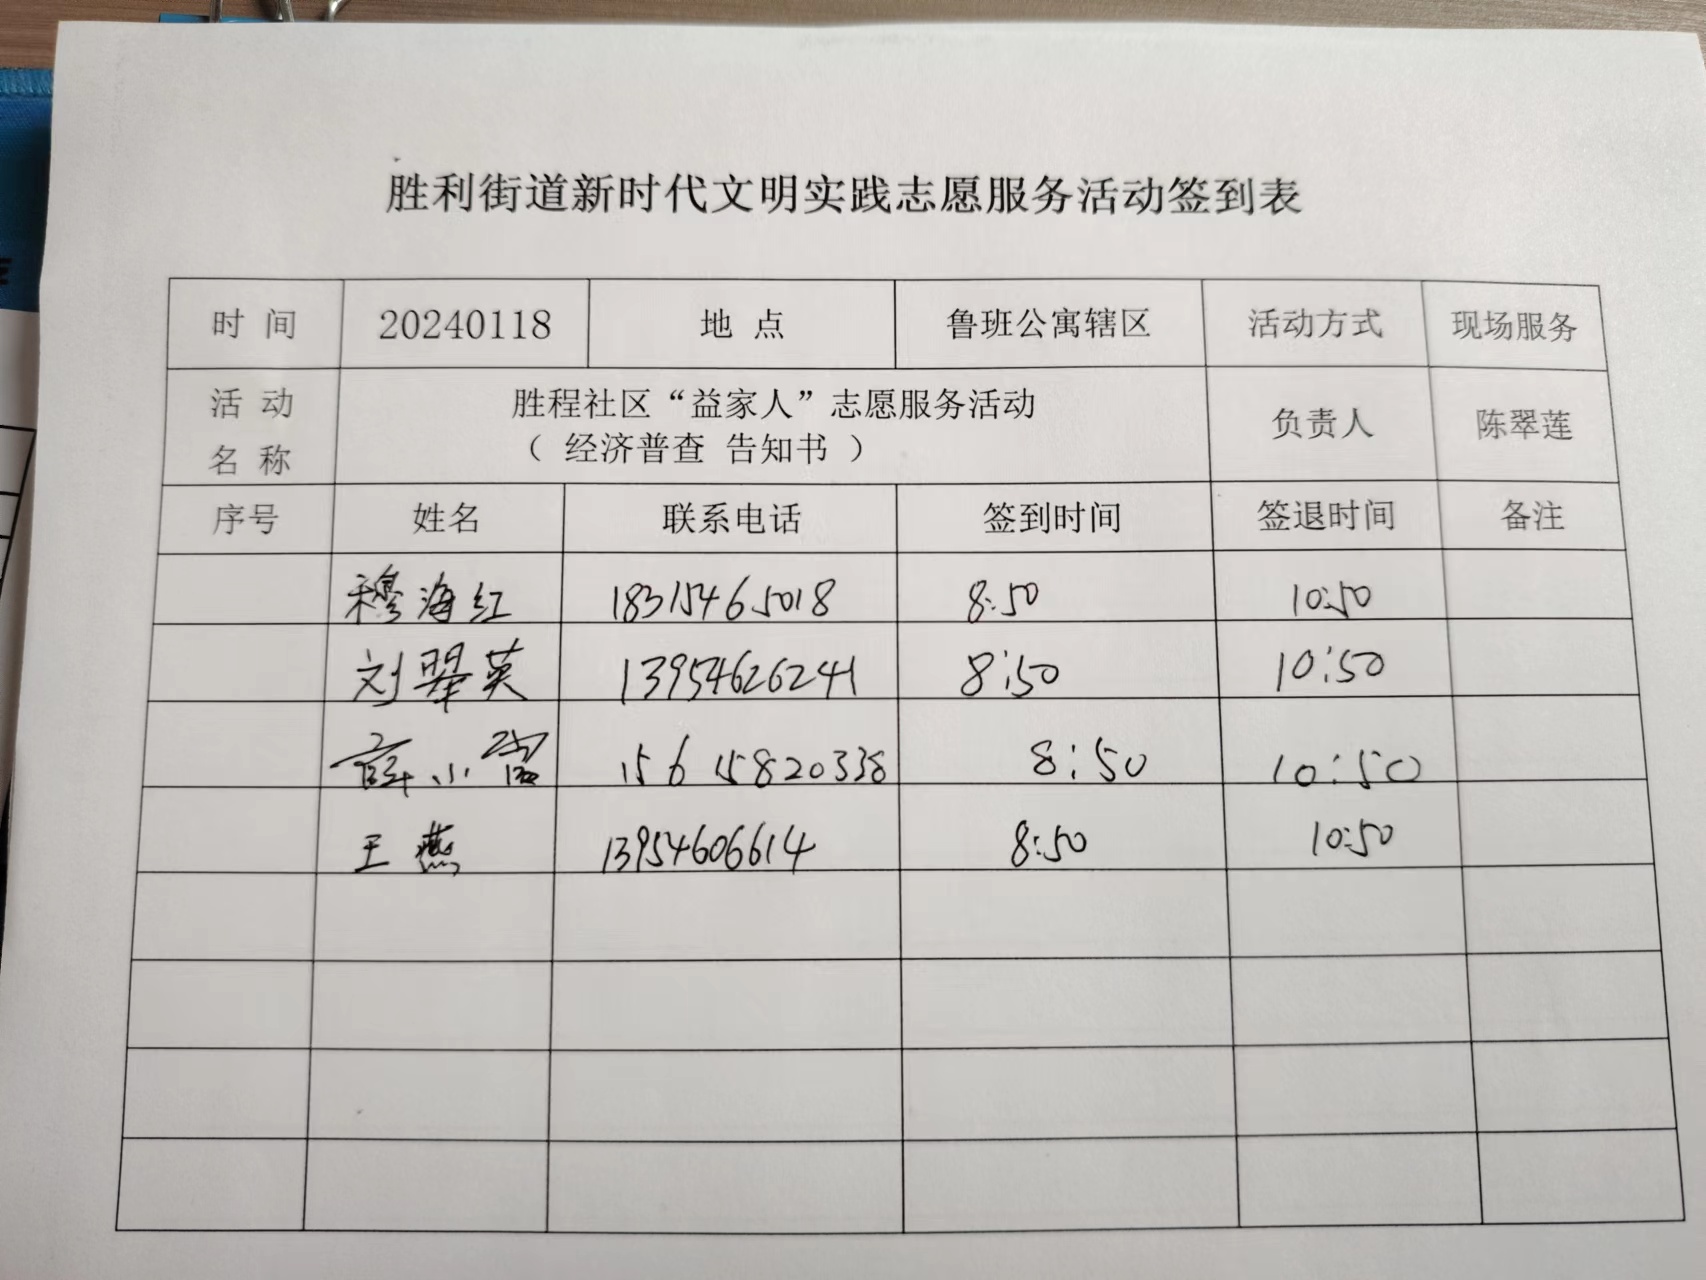 胜利街道新时代文明实践志愿服务活动签到表
时 间 20240118 地 点 鲁班公寓辖区 活动方式 现场服务
活 动 名 称 胜程社区“益家人”志愿服务活动 负责人 陈翠莲
（ 经济普查 告知书 ）
序号 姓名 联系电话 签到时间 签退时间 备注
穆海红 18315465018 8:50 10:50
刘翠英 13954626241 8:50 10:50
薛小 15615820338 8:50 10:50
王燕 13954606614 8:50 10:50